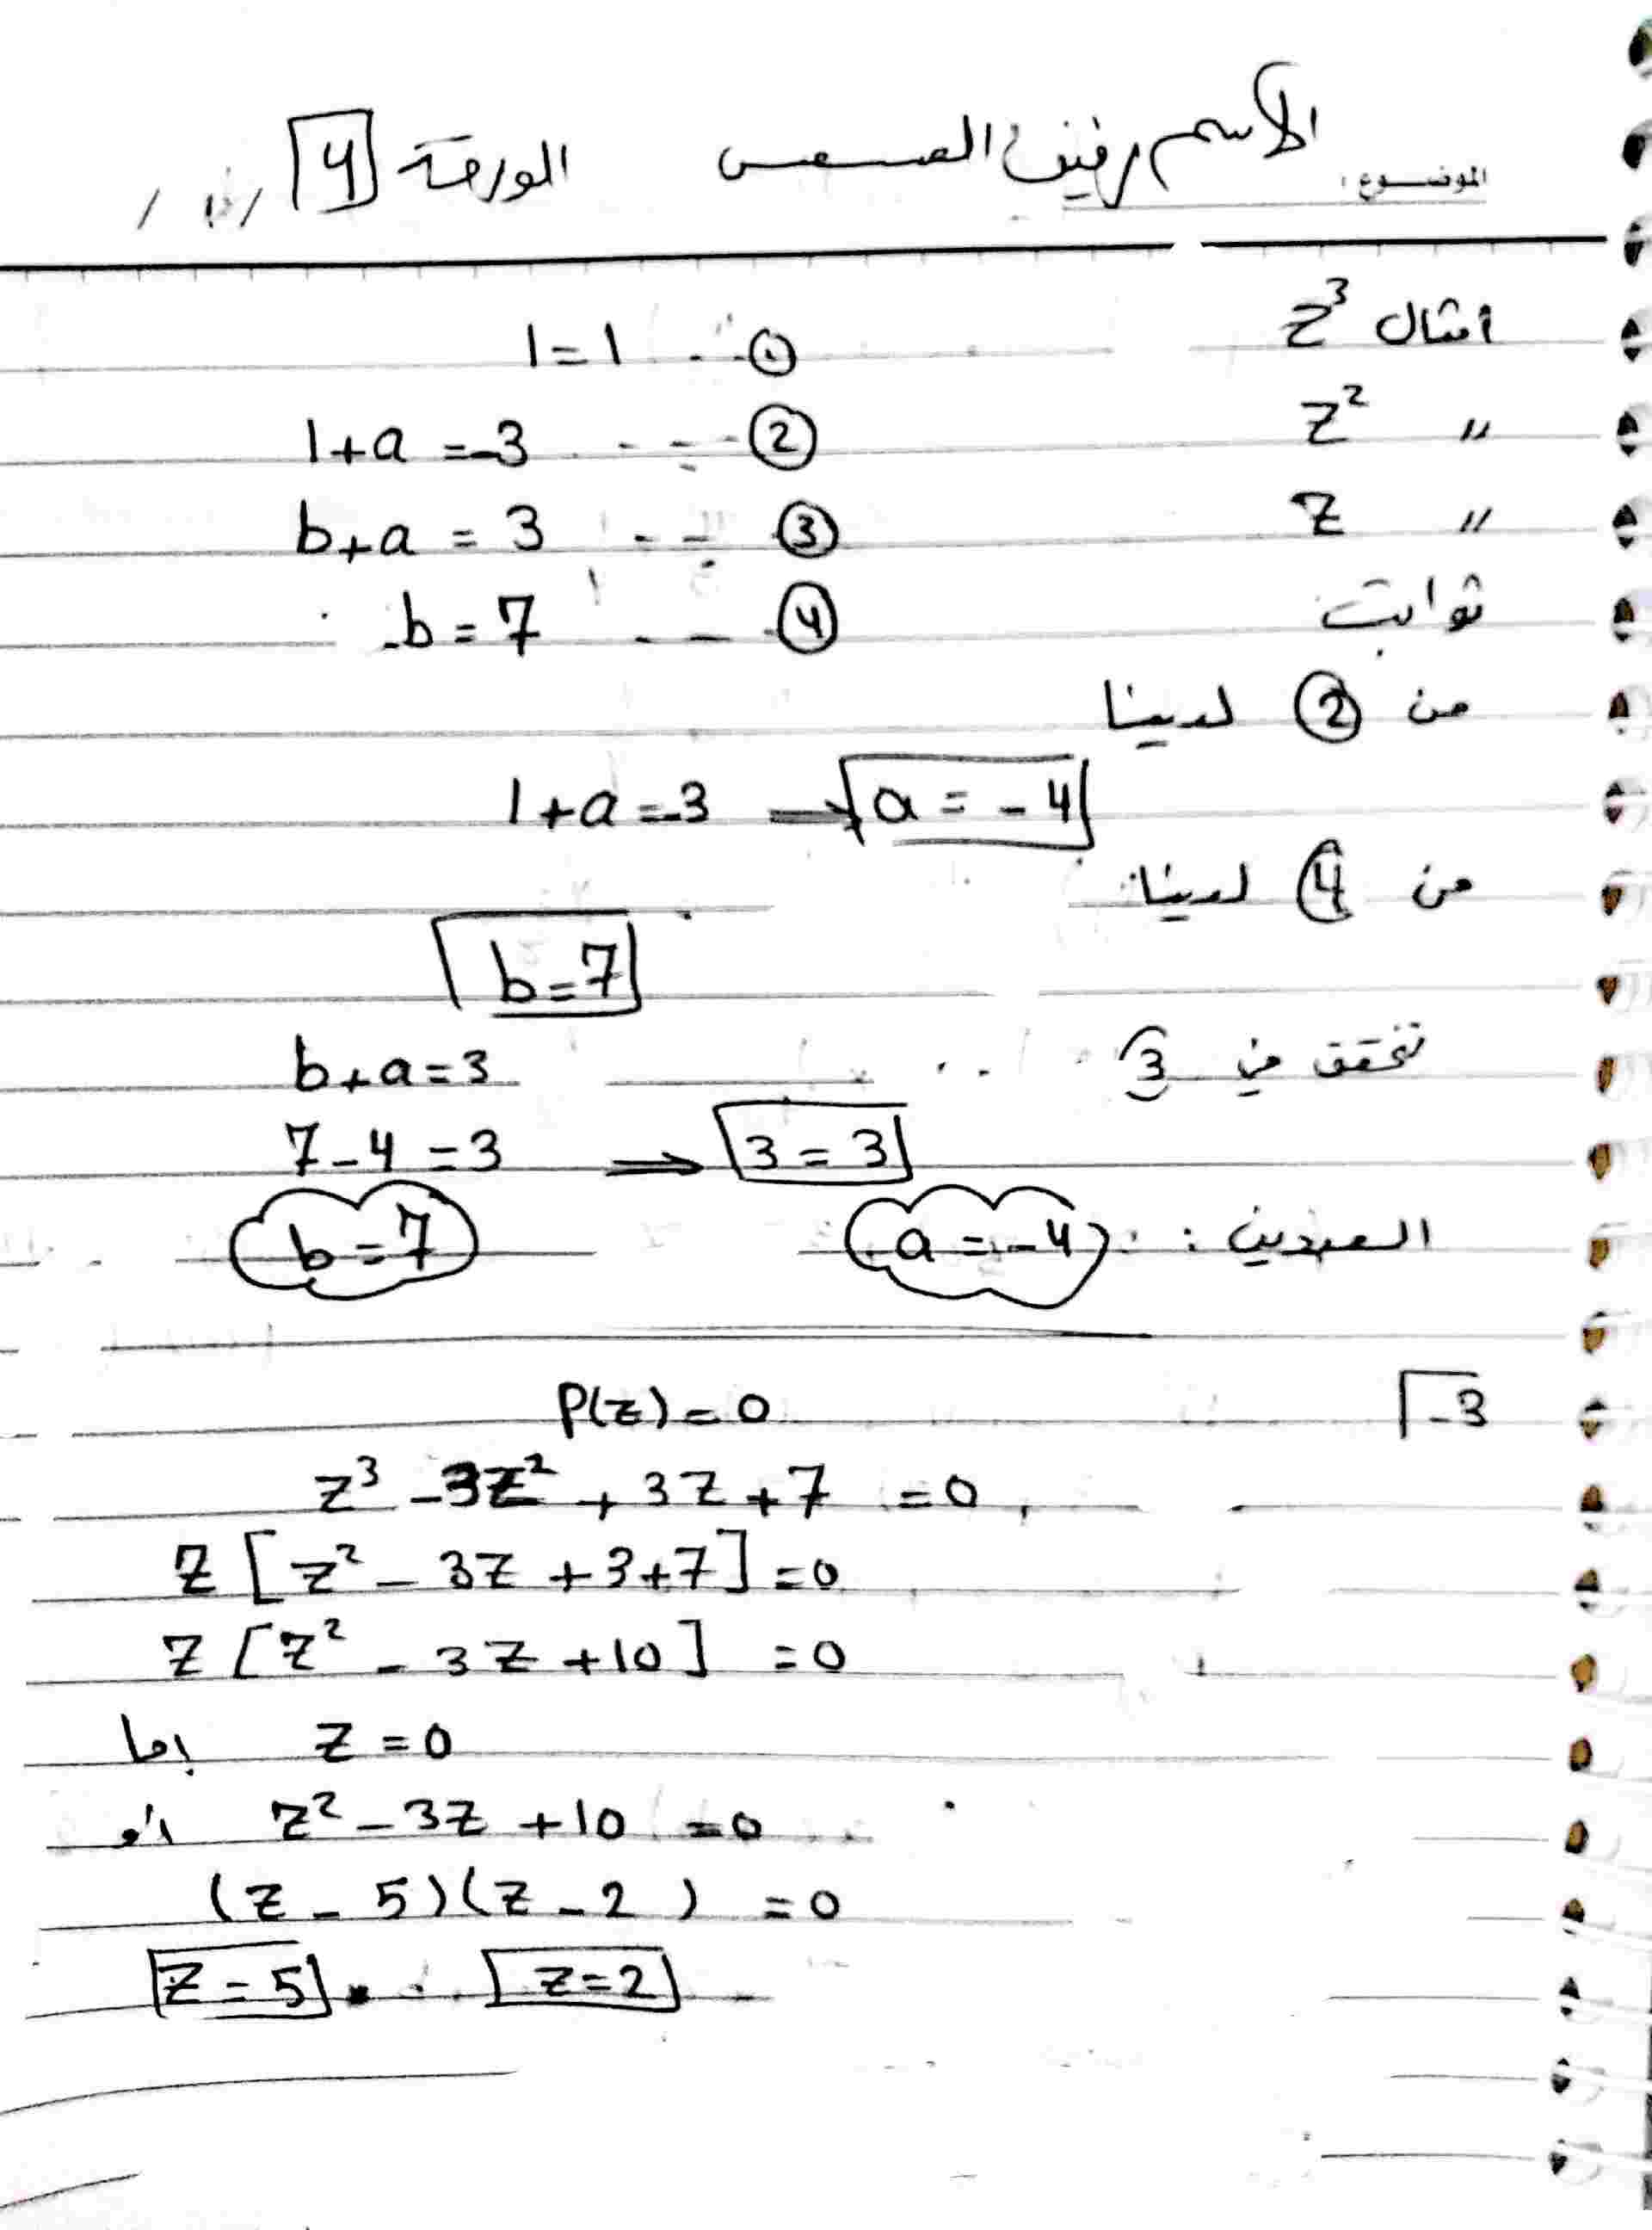 الموضوع: الاسم رفيف الورقة 4
/ /
امثال z³ 1=1 ①
〃 z² 1+a=-3 ②
〃 z b+a=3 ③
ثوابت b=7 ④
من ② لدينا
1+a=-3 → a=-4
من ④ لدينا
b=7
نحقق في 3
b+a=3
7-4=3 ⇒ 3=3
العددين: a=-4 b=7
3-
P(z)=0
z³-3z²+3z+7=0
z[z²-3z+3+7]=0
z[z²-3z+10]=0
إما z=0
أو z²-3z+10=0
(z-5)(z-2)=0
z=5 z=2